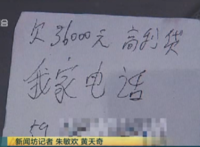 欠36000元 高利贷
我家电话
新闻坊记者 朱敏欢 黄天奇